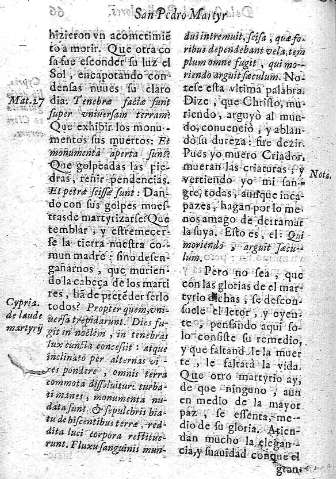 San Pedro Martyr
hizieron vn acometimiē
to a morir. Que otra co
sa fue esconder su luz el
Sol, encapotando con
densas nuues su claro
dia: Tenebræ factæ sunt
super vniversam terram:
Que exhibir los monu-
mentos sus muertos: Et
monumenta aperta sunt:
Que golpeadas las pie-
dras, reñir pendencias.
Et petræ scissæ sunt: Dan-
do con sus golpes mues-
tras de martyrizarse: Que
temblar, y estremecer-
se la tierra nuestra co-
mun madre: sino desen-
gañarnos, que murien-
do la cabeça de los marti
res, há de preteder serlo
todos? Propter quem, vni-
uersa trepidarunt. Dies fu-
git in noctem, in tenebras
lux cuncta concessit: atque
inclinato per alternas vi-
res pondere, omnis terra
commota dissoluitur: turba-
ti manes, monumenta nu-
data sunt, & sepulchris hia-
tu dehiscentibus terræ, red-
dita luci corpora restitue-
runt. Fluxu sanguinis mun-
Mat. 27
Cypria.
de laude
martyrij
dus intremuit, scissa, quæ fo-
ribus dependebant vela, tem
plum omne fugit, qui mo-
riendo arguit sæculum. No-
tese esta vltima palabra.
Dize, que Christo, mu-
riendo, arguyò al mun-
do, conuenciò, y ablan-
dò su dureza: fue dezir.
Pues yo muero Criador,
mueran las criaturas, y
vertiendo yo mi san-
gre, todas, aunque inca-
pazes, hagan por lo me-
nos amago de derramar
la suya. Esto es, el: Qui
moriendo, arguit sæcu-
lum.
Nota.
Pero no sea, que
con las glorias de el mar-
tyrio dichas, se descon-
suele el letor, y oyen-
te, pensando aqui so-
lo consiste su remedio,
y que faltando le la muer
te, le faltarà la vida.
Que otro martyrio ay,
de que ninguno, aun
en medio de la mayor
paz, se essenta, me-
dio de su gloria. Atien-
dan mucho la elegan-
cia, y suauidad con que el
gran-